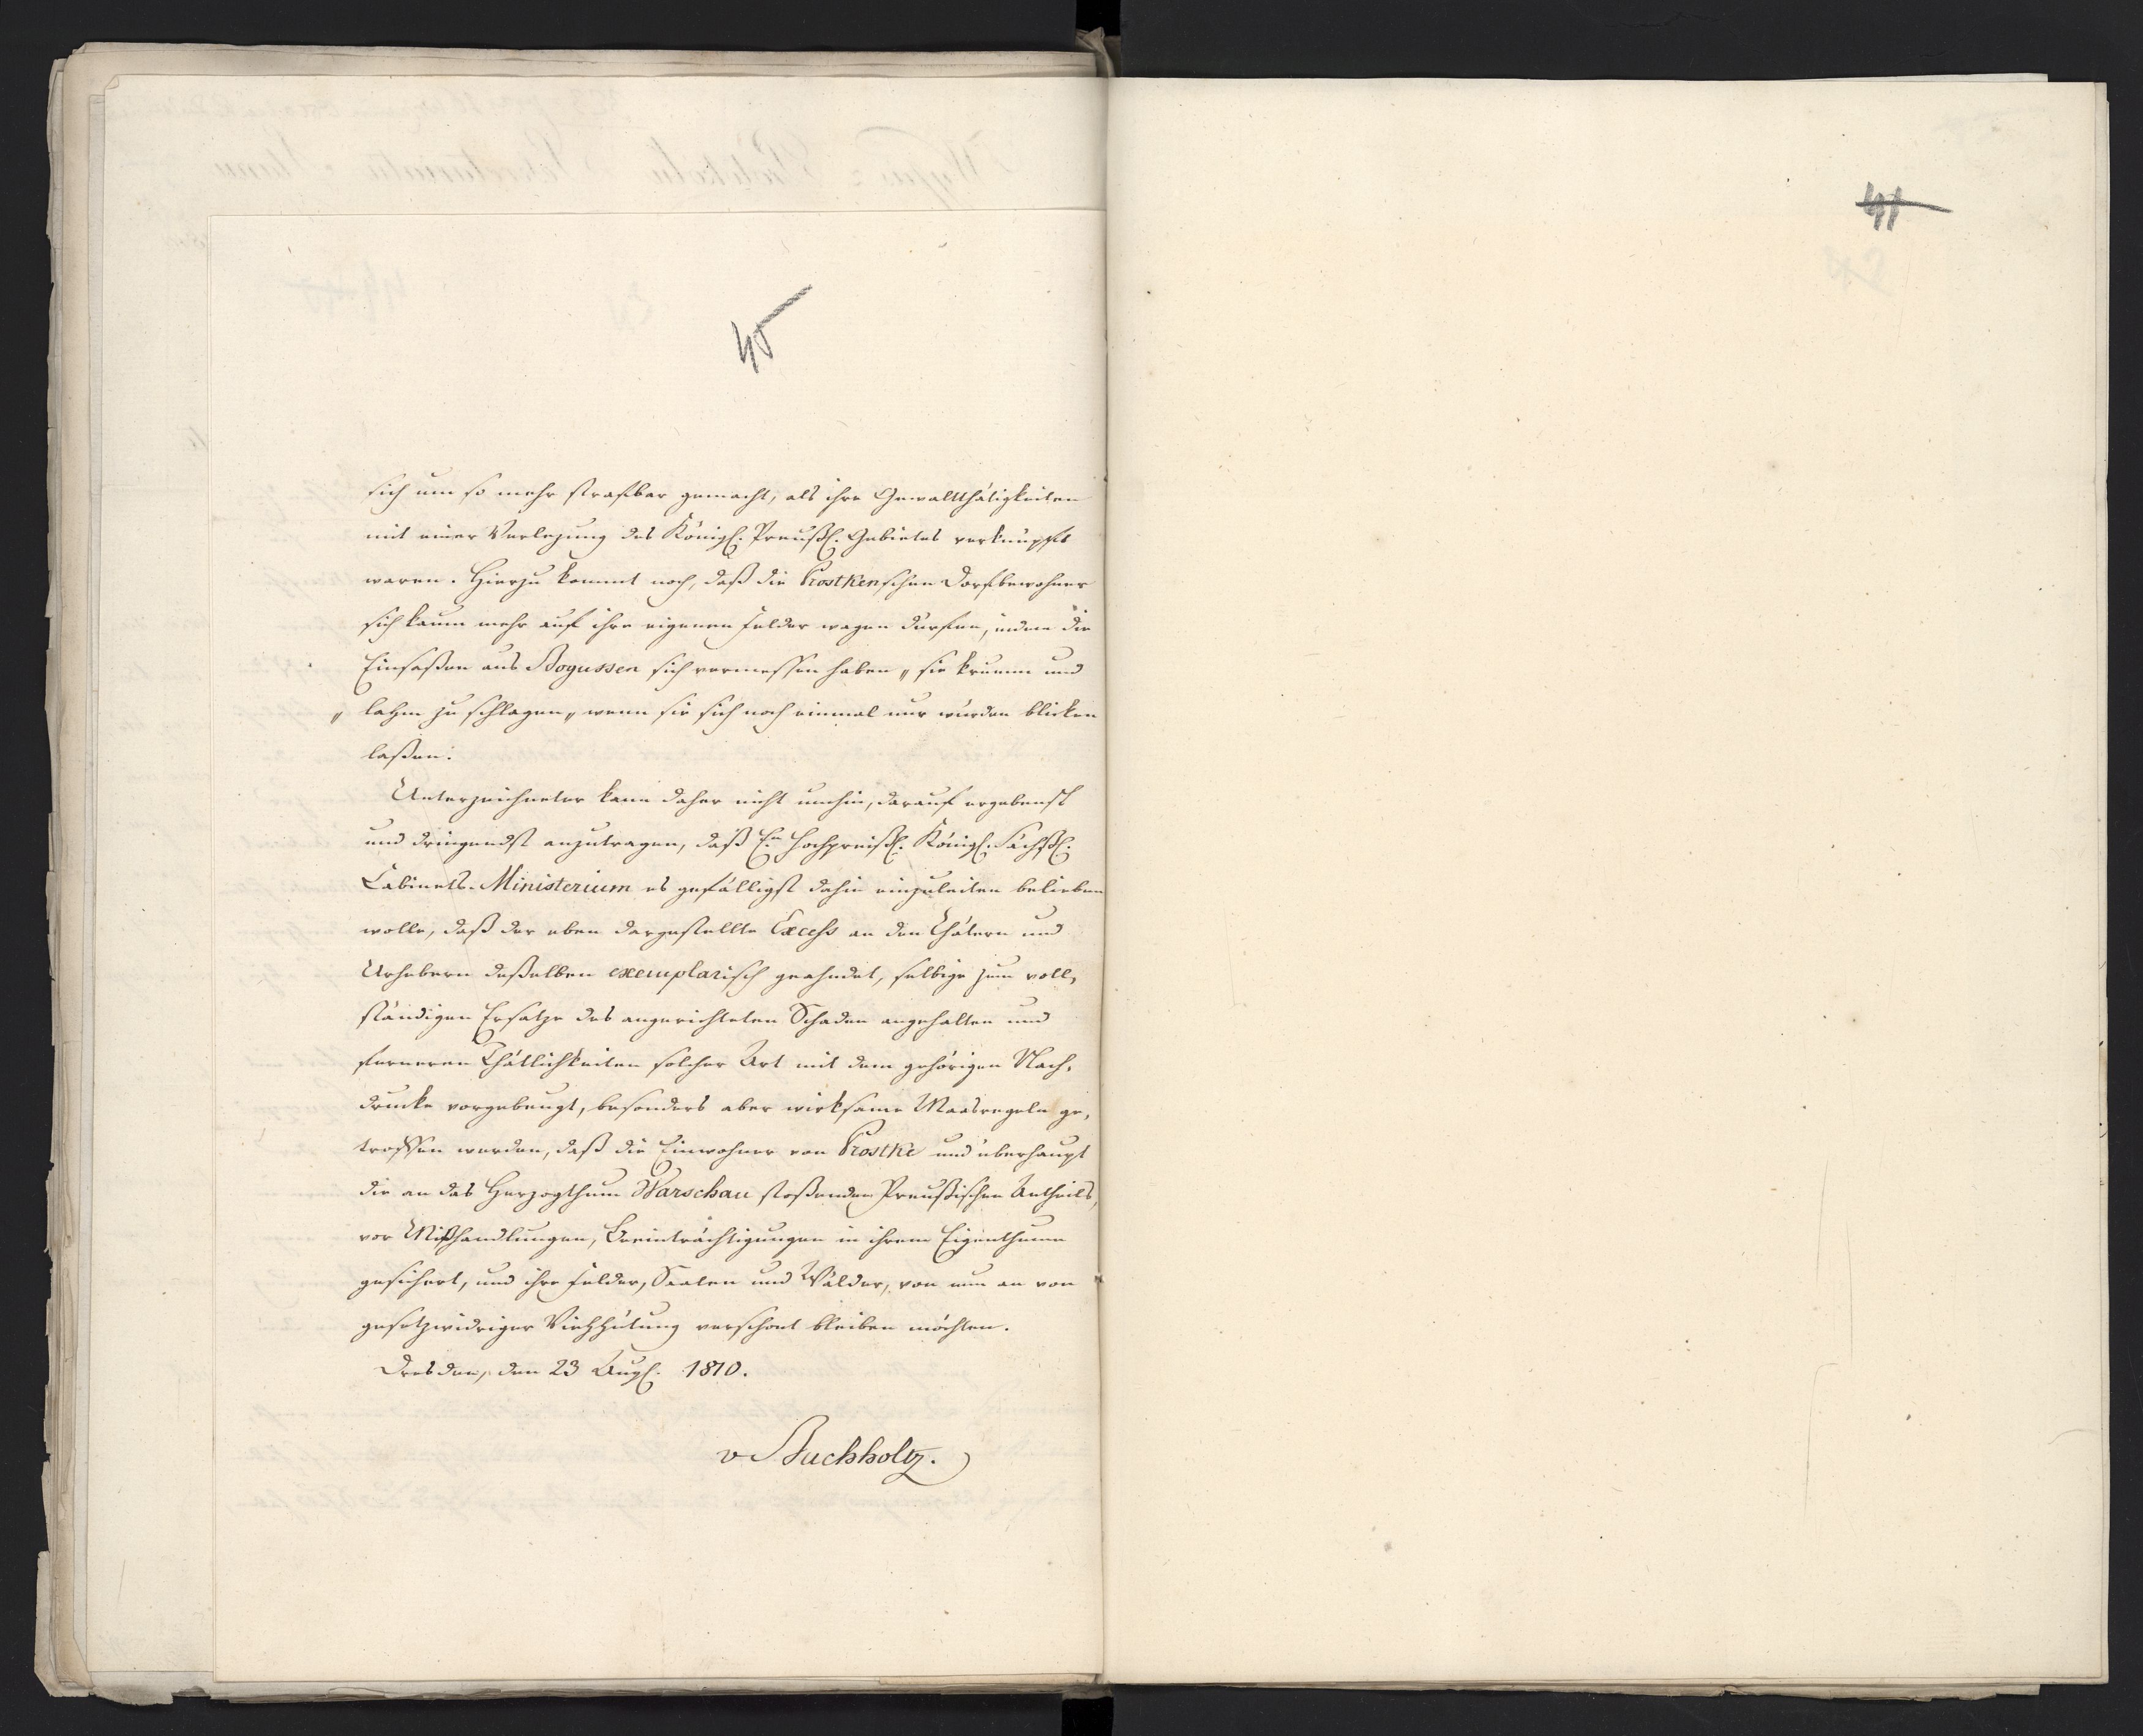 45
41
sich um so mehr strafbar gemacht, als ihre Gewaltthätigkeiten
mit einer Verlezung des Königl. Preußl. Gebietes verknüpft
waren. Hierzu kommt noch, daß die Prostkenschen Dorfbewohner
sich kaum mehr auf ihre eigenen Felder wagen dürfen, indem die
Einsaßen aus Bogussen sich vermessen haben „ sie krumm und
„ lahm zu schlagen „ wenn sie sich noch einmal nur würden blicken
laßen.
Unterzeichneter kann daher nicht umhin, darauf ergebenst
und dringendst anzutragen, daß Ein Hochpreißl. Königl. Sächßl.
Cabinets-Ministerium es gefälligst dahin einzuleiten belieben
wolle, daß der eben dargestellte Excess an den Thätern und
Urhebern deßelben exemplarisch geahndet, selbige zum voll„
ständigen Ersatze des angerichteten Schaden angehalten und
ferneren Thätlichkeiten solcher Art mit dem gehörigen Nach„
drucke vorgebeugt, besonders aber wirksame Maasregeln ge„
troffen werden, daß die Einwohner von Prostke und überhaupt
die an das Herzogthum Warschau stoßenden Preußischen Antheils,
vor Mißhandlungen, Beeinträchtigungen in ihrem Eigenthume
gesichert, und ihre Felder, Saaten und Wälder, von nun an von
gesetzwidriger Viehhütung verschont bleiben möchten.
Dresden, den 23 Augl. 1810.
v Buchholtz.